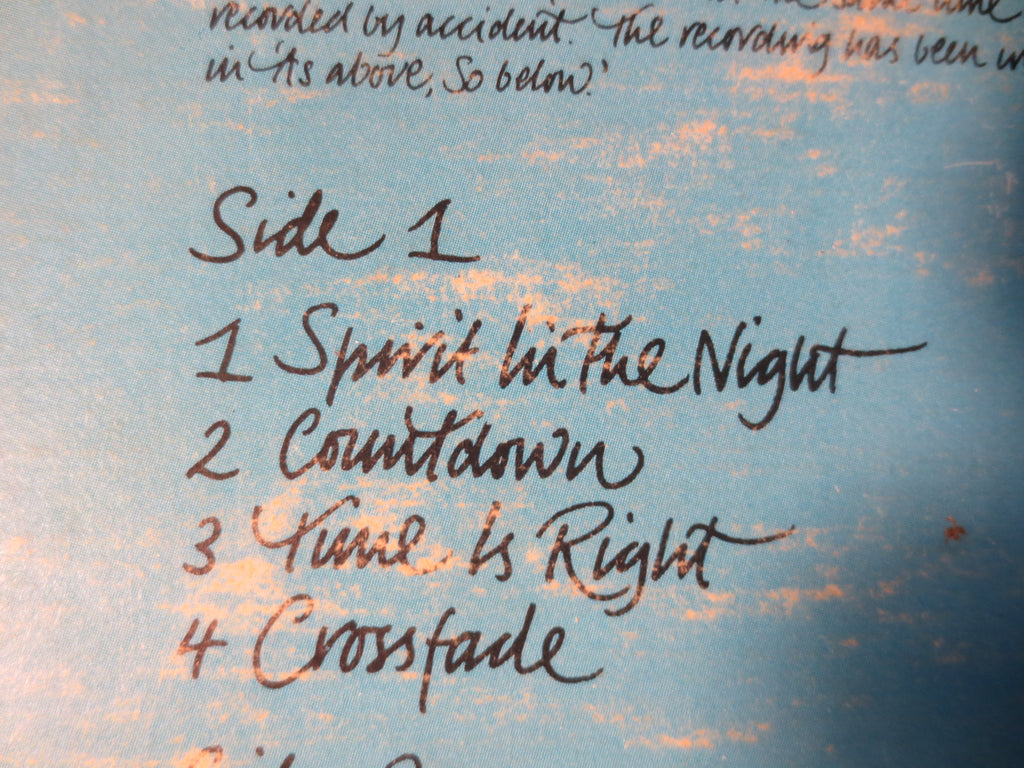 the same time
recorded by accident. The recording has been
in 'As above, So below.'
Side 1
1 Spirit In The Night
2 Countdown
3 Time Is Right
4 Crossfade
Side